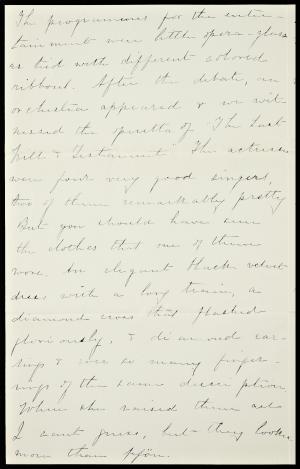 The programmes for the enter-
tainment were little opera-glass
es tied with different colored
ribbons. After the debate, an
orchestra appeared & we wit-
nessed the operetta of "The Last
Will & Testament" The actresses
were four very good singers,
two of them remarkably pretty
But you should have seen
the clothes that one of them
wore. An elegant black velvet
dress with a long train, a
diamond cross that flashed
gloriously, & diamond ear-
rings & ever so many finger-
rings of the same description
Where she raised them all
I cant guess, but they looked
more than